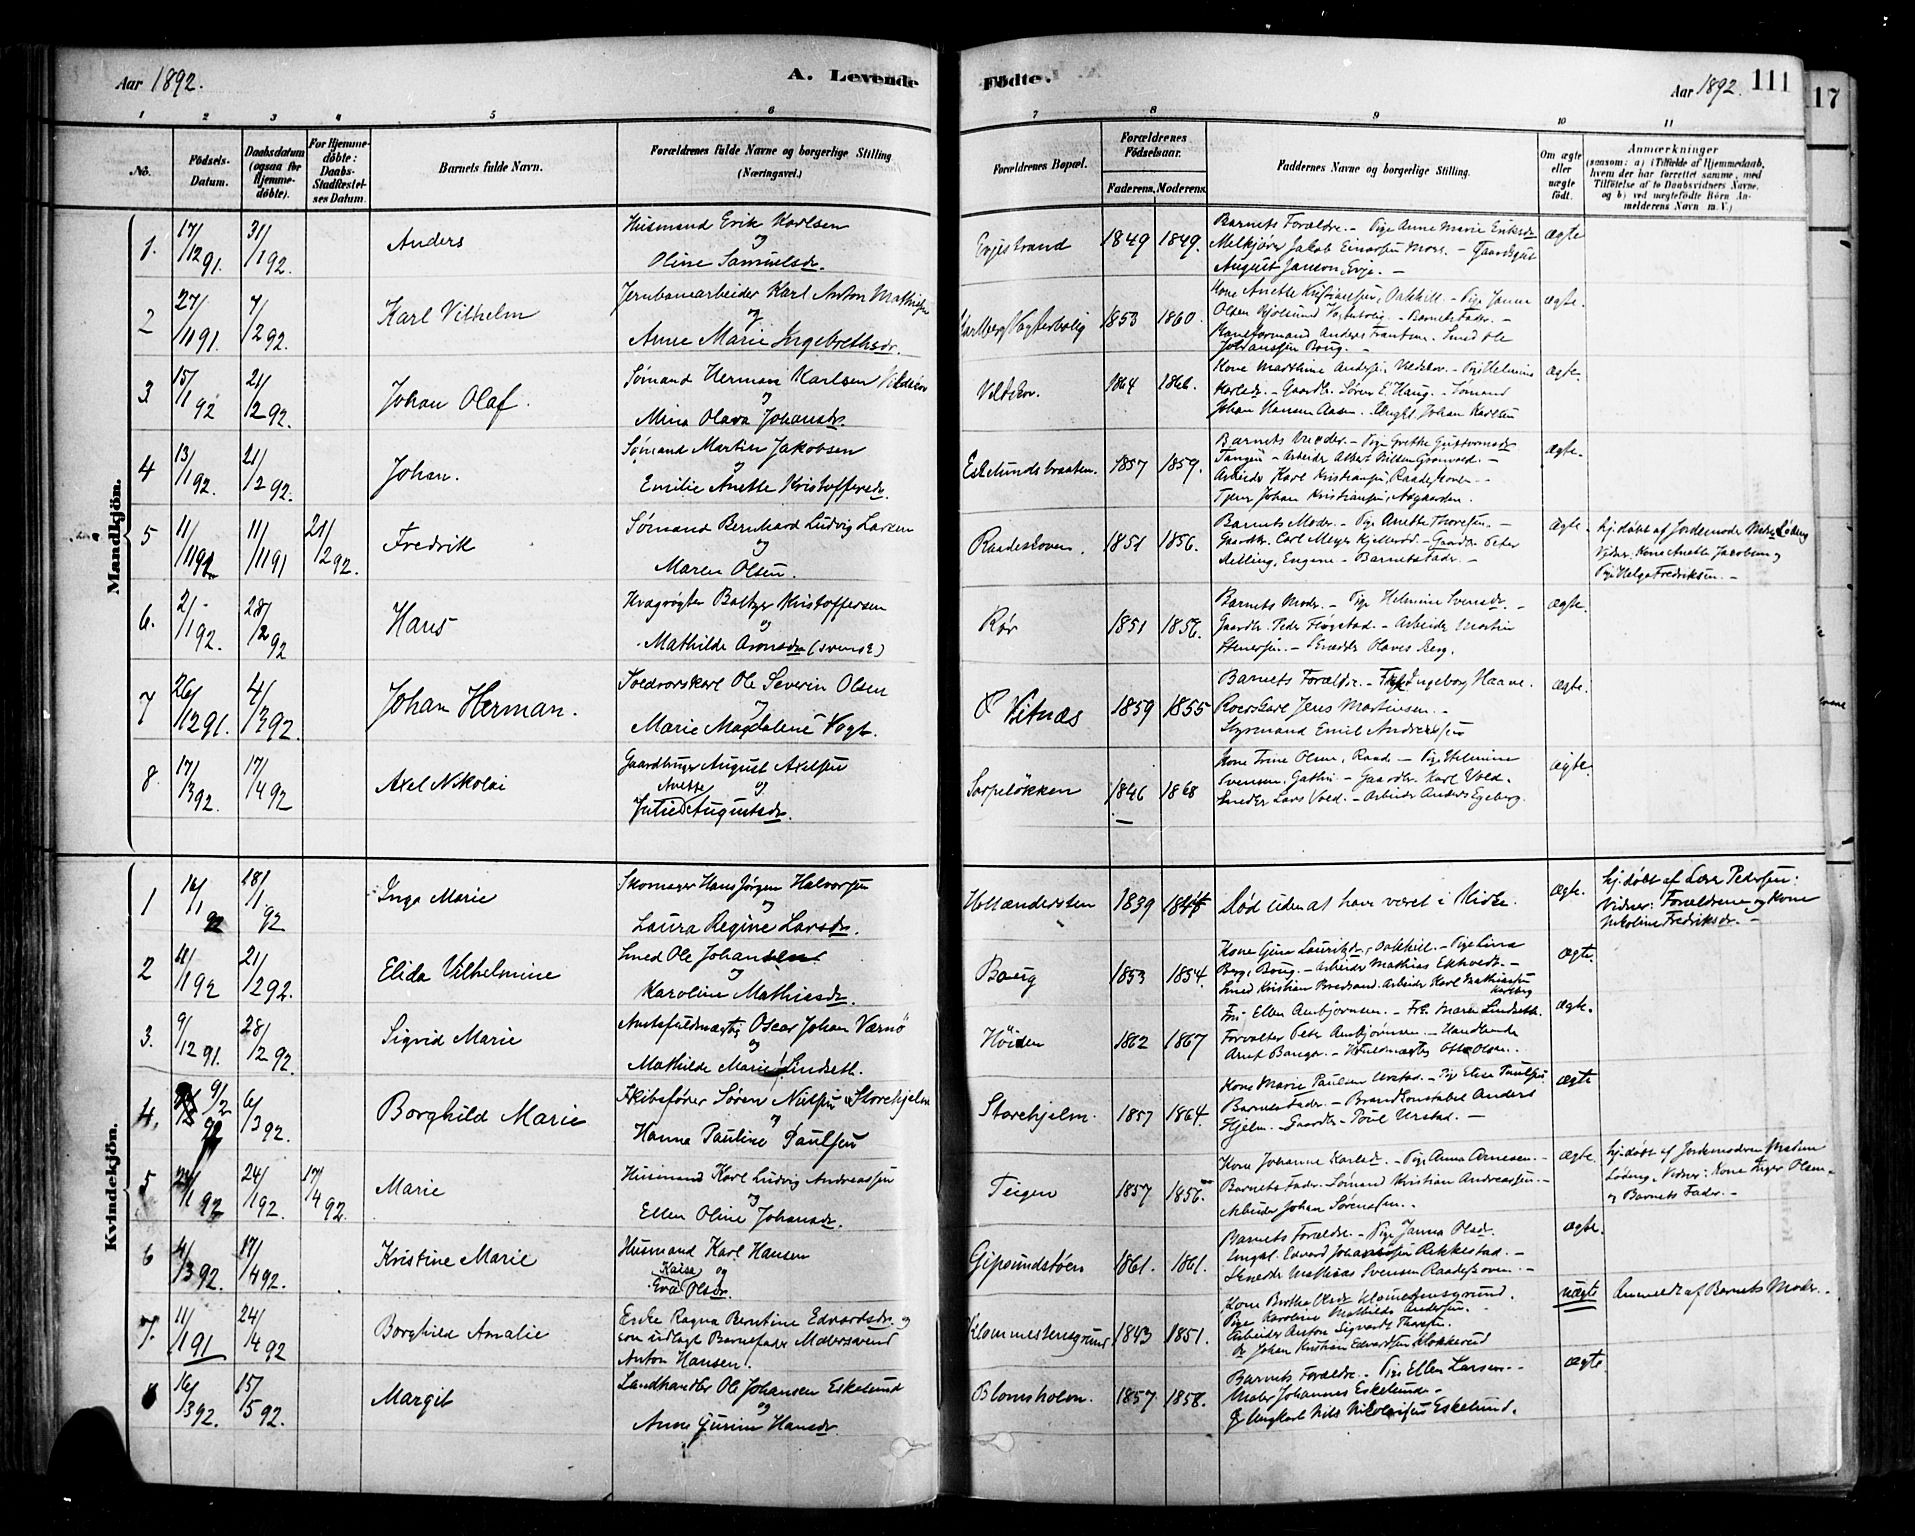 Aar 1892.
A. Levende
Fødte.
Aar 1892.
111
17
1 2 3 4 5 6 7 8 9 10 11
No.
Fødsels-
Datum.
Daabsdatum
(ogsaa for
Hjemme-
døbte).
For Hjemme-
døbte:
Daabs-
Stadfæstel-
ses Datum.
Barnets fulde Navn.
Forældrenes fulde Navne og borgerlige Stilling
(Næringsvei.)
Forældrenes Bopæl.
Forældrenes
Fødselsaar.
Faderens. Moderens.
Faddernes Navne og borgerlige Stilling.
Om ægte
eller
uægte
født.
Anmærkninger
(saasom: a) i Tilfælde af Hjemmedaab,
hvem der har forrettet samme, med
Tilføielse af to Daabsvidners Navne,
og b) ved uægtefødte Børn An-
melderens Navn m. V.)
Mandkjön.
1. 17/12 91. 31/1 92. Anders
Husmand Erik Karlsen
og
Oline Samuelsdr.
Evjestrand 1849 1849.
Barnets Forældre. - Pige Anne Marie Eriksdr
Melkjører Jakob Einarsen Moss. - Gaardsgut
August Janson, Evje. -
ægte
2 27/11 91. 7/2 92. Karl Vilhelm
Jernbanearbeider Karl Anton Mathisen
og
Anne Marie Ingebrethsdr.
Karlberg Vogterbolig 1853 1860.
Kone Anette Kristiansen, Oakhill. - Pige Janna
Olsen Vogterbolig. - Barnets Fader. -
Baneformand Anders Frantsen. Smed Ole
Johanssen Boug. -
ægte.
3 15/1 92 21/2 92. Johan Olaf.
Sømand Herman Karlsen Vildskov
og
Mina Olava Johansdr.
Vildskov. 1864 1866.
Kone Mathine Anders, Vedskov. - Pige Helmine
Karlsdr. - Gaardbr. Søren E. Haug. - Sømand
Johan Hansen Aasen. Ungkl. Johan Karlsen
ægte.
4 13/1 92. 21/2 92. Johan.
Sømand Martin Jakobsen
og
Emilie Anette Kristoffersdr.
Eskelundsbraaten. 1857 1859.
Barnets Moder. - Pige Grethe Gustavsdr
Tangen - Arbeider Albert Nilsen Grønvold. -
Arbeider Karl Kristiansen, Raadeskoven -
Tjener Johan Kristiansen, Aagaarden.
ægte.
5 11/11 92 11/11 91 21/2 92. Fredrik
Sømand Bernhard Ludvig Larsen
og
Maren Olsen.
Raadeskoven. 1851 1856.
Barnets Moder. - Pige Anette Thoresen. -
Gaardbr. Carl Meyer Kjellerød. - Gaardbr. Peter
Aelling, Engene - Barnets Fader. -
ægte.
hj. døbt af Jordemoder
Vidner: Kone Anette Jacobsen og
Pige Helga Fredriksen. -
6. 2/1 92. 28/2 92 Hans
Kvægrøgter Baltzer Kristoffersen
og
Mathilde Aronsdr (svensk)
Rør 1851 1856.
Barnets Moder. - Pige Helmine Svensdr. -
Gaardbr. Peder Fløgstad. - Arbeider Martin
Stenersen. - Snedker Olaves Berg.
ægte.
7 26/12 91. 4/3 92. Johan Herman.
Ole Severin Olsen
og
Marie Magdalene Vogt.
Vitnæs 1859 1855
Barnets Forældre. - Frk Ingeborg Haave.
Jens Martinsen. -
Styrmand Emil Andreassen
ægte.
8. 17/3 92. 17/4 92 Axel Nikolai
Gaardbruger August Axelsen
Anette og
Julie Augustsdr.
Sarpeløkken 1846 1868
Kone Trine Olsen, Raad - Pige Helmine
Svensen, Gathu - Gaardbr. Karl Vold.
Smeder Lars Vold. - Arbeider Anders Egeberg.
ægte.
Kvindekjön.
1 16/1 92 18/1 92 Inga Marie
Skomager Hans Jörgen Halvorsen
og
Laura Regine Larsdr.
Hollendersten 1839 1844
Død uden at have været i Kirke.
ægte.
hj. døbt af Lars Pedersen:
Vidner: Forældrene og Kone
Nikoline Fredriksdr. -
2 11/1 92 21/2 92. Elida Vilhelmine
Smed Ole Johansen.
og
Karoline Mathiasdr.
Boug 1853 1854.
Kone Gina Lauritzdr, Oakhill. - Pige Lina
Berg, Boug. - Arbeider Mathias Ekhveth. -
Smed Kristian Bredsand. Arbeider Karl Mathiassen
Karlberg
ægte.
3. 9/12 91. 28/2 92. Sigrid Marie
Amtsfuldmægtig Oscar Johan Værnø
og
Mathilde Marie Lindseth.
Høiden 1862 1867
Fru Ellen Ambjørnsen. - Frk. Maren Lindseth.
Forvalter Peter Ambjørnsen. - Handlende
Arnt Bange. - Fuldmægtig Otto Olsen.
ægte.
4. 9/2 92 6/3 92. Borghild Marie
Skibsfører Søren Nielsen Storehjelm
og
Hanna Pauline Paulsen
Storehjelm. 1857 1864.
Kone Marie Paulsen Urstad. - Pige Elise Paulsen.
Barnets Fader. - Brandkonstabel Anders
Hjelm. - Gaardbr. Poul Urstad. -
ægte
5 24/1 92 24/1 92. 17/4 92. Marie
Husmand Karl Ludvig Andreassen
og
Ellen Oline Johansdr.
Teigen 1857 1856
Kone Johanne Karlsdr. - Pige Anna Arnesen. -
Barnets Fader. - Sømand Kristian Andreassen. -
Arbeider Johan Sørensen. -
ægte.
hj. døbt af Jordemoderen Madam
Løding, Vidner: Kone Inger Olsen
og Barnets Fader. -
6 4/3 92. 17/4 92. Kristine Marie
Husmand Karl Hansen
Kaisa og
Eva Olsdr.
Gipsundstøen 1861. 1861.
Barnets Forældre. - Pige Janna Olsdr.
Ungkl. Edvard Johannessen Rekkestad. -
Snedker Mathias Svensen Raadeskoven. -
ægte.
7. 11/1 91 24/4 92 Borghild Amalie
Enke Ragna Berntine Edvardsdr. og
som udlagt Barnefader Malersvend
Anton Hansen.
Klommestensgrund 1843 1851.
Kone Berthe Olsdr Klommestensgrund.
Pige Karoline Mathilde Andersen. -
Arbeider Anton Sigvardt Thorsten.
Do Johan Kristian Edvardsen Klokkerud
uægte
Anmeldt af Barnets Moder. -
8 16/3 92. 15/5 92. Margit
Landhandler Ole Johansen Eskelund
og
Anne Gurine Hansdr
Blomsholm. 1857 1858.
Barnets Forældre. - Pige Ellen Larsen. -
Maler Johannes Eskelund. -
Og Ungkarl Nils Nikolaisen Eskelund.
ægte